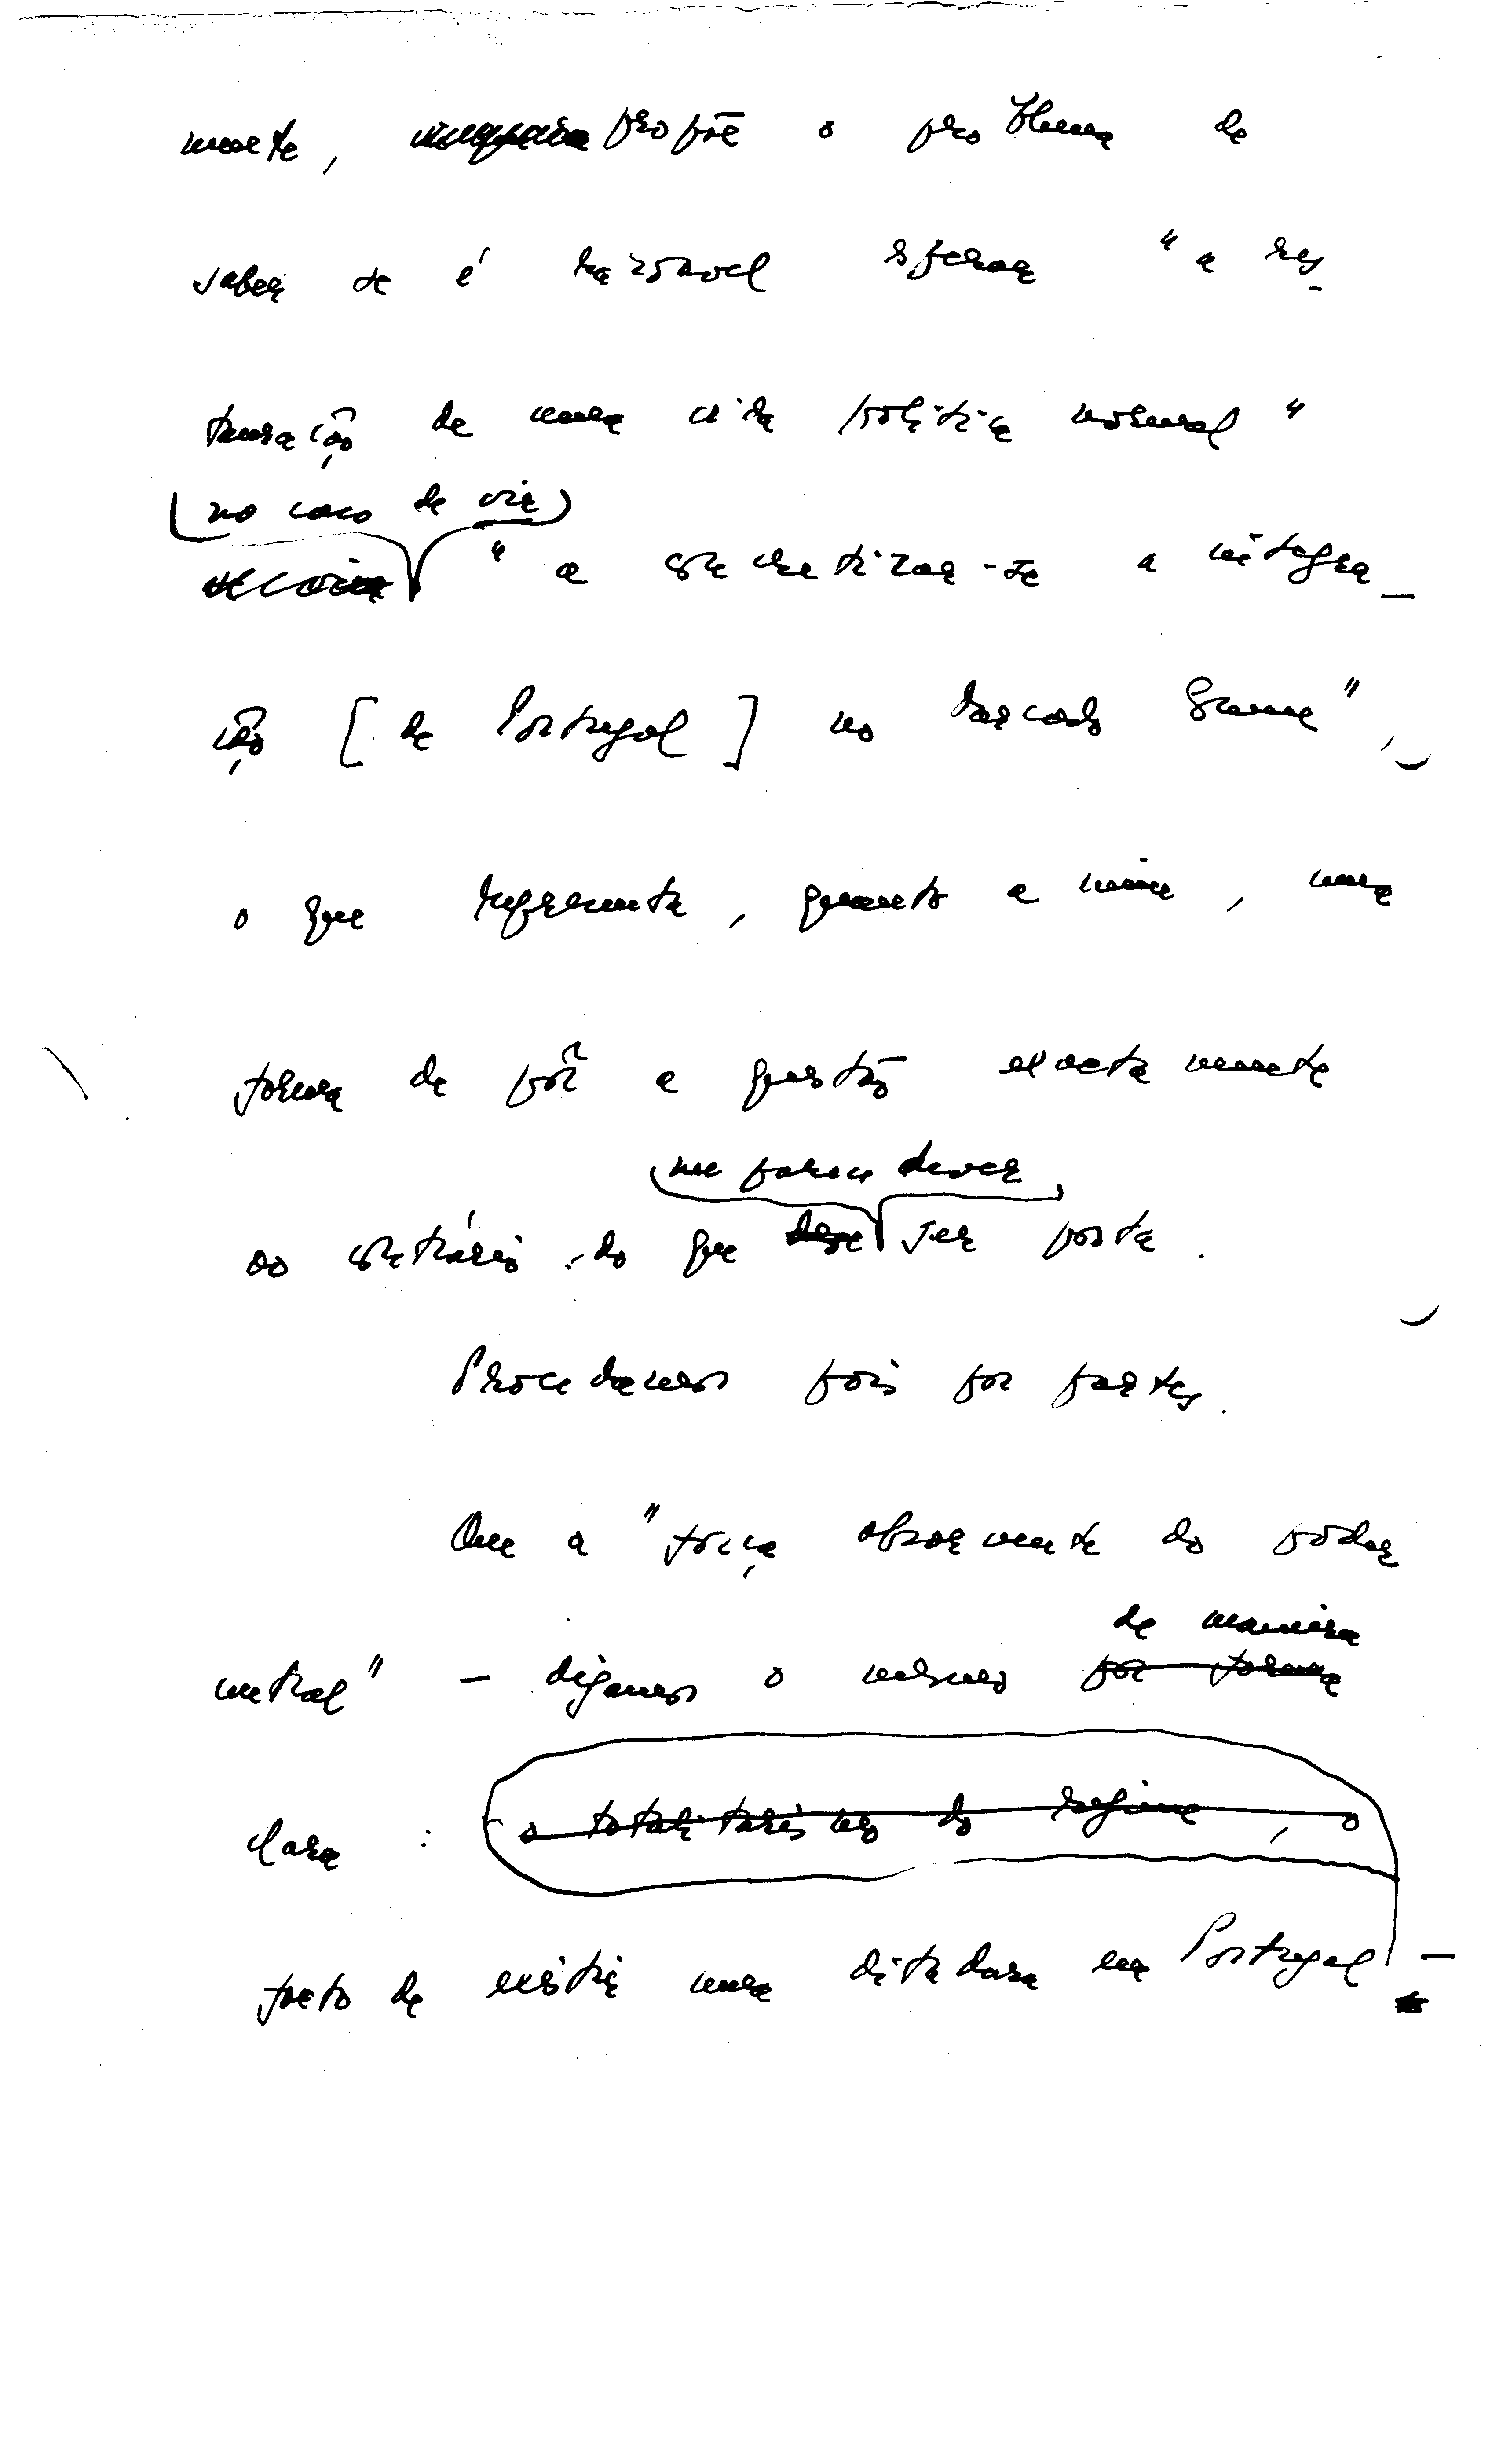 mente, propõe o problema de
saber se é razoável esperar "a res-
tauração de uma vida política normal"
(no caso de vir)
"a concretizar-se a integra-
ção [de Portugal] no Mercado Comum",
o que representa, quanto a mim, uma
forma de pôr a questão exactamente
me parece dever
ao contrário do que deve ser posta.
Procedamos pois por partes.
Que a "fôrça absorvente do poder
central" – digamos o mesmo por forma
de maneira
clara : o totalitarismo do regime, o
facto de existir uma ditadura em Portugal –